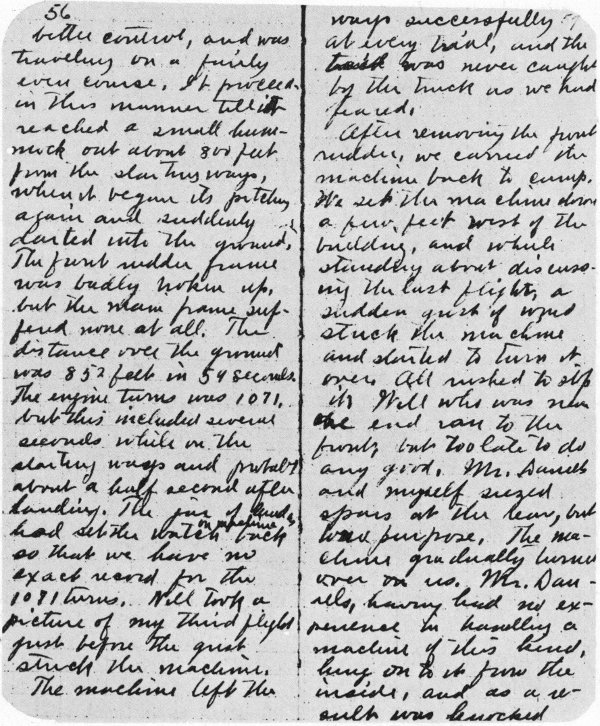 56
better control, and was
traveling on a fairly
even course. It proceed-
in this manner till it
reached a small hum-
mock out about 800 feet
from the starting ways,
when it began its pitching
again and suddenly
darted into the ground.
The front rudder frame
was badly broken up,
but the main frame suf-
fered none at all. The
distance over the ground
was 852 feet in 59 seconds.
The engine turns was 1071,
but this included several
seconds while on the
starting ways and probably
about a half second after
landing. The jar of landing
on machine
had set the watch back
so that we have no
exact record for the
1071 turns. Will took a
picture of my third flight
just before the gust
struck the machine.
The machine left the
ways successfully
at every trial, and the
was never caught
by the truck as we had
feared.
After removing the front
rudder, we carried the
machine back to camp.
We set the machine down
a few feet west of the
building, and while
standing about discuss-
ing the last flight, a
sudden gust of wind
struck the machine
and started to turn it
over. All rushed to stop
it. Will who was near
one end ran to the
front, but too late to do
any good. Mr. Daniels
and myself seized
spars at the rear, but
to no purpose. The ma-
chine gradually turned
over on us. Mr. Dan-
iels, having had no ex-
perience in handling a
machine of this kind,
hung on to it from the
inside, and as a re-
sult was knocked